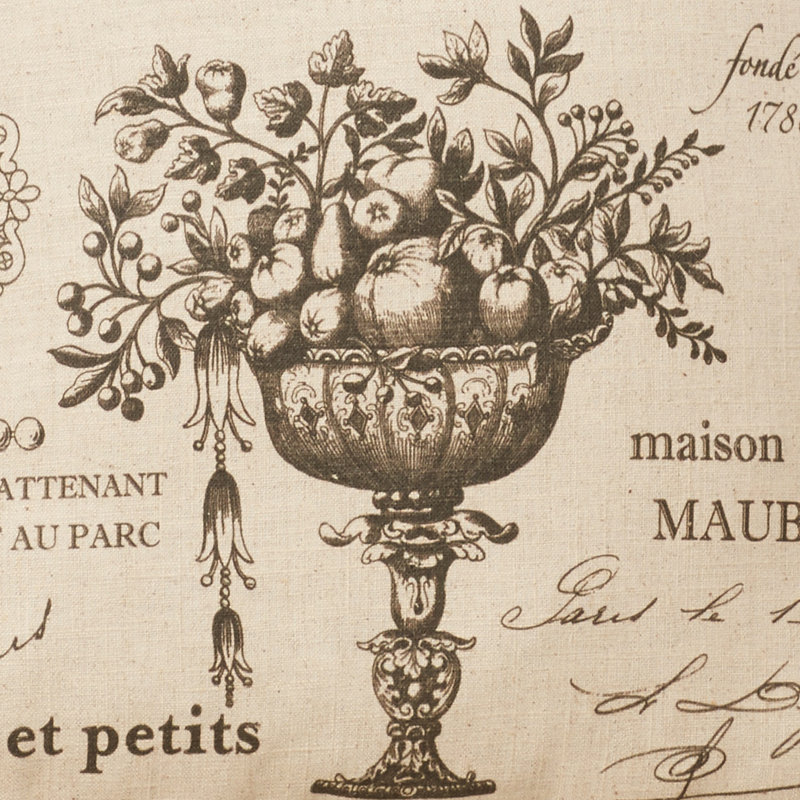 fondé
178
ATTENANT
AU PARC
maison
MAUB
Paris le 1
et petits